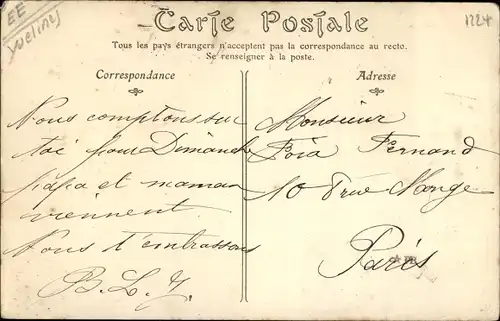 EE
Yvelines
1224
Carte Postale
Tous les pays étrangers n'acceptent pas la correspondance au recto.
Se renseigner à la poste.
Correspondance
Nous comptons sur
toi pour Dimanche
papa et maman
viennent
Nous t'embrassons
B. L. Y.
Adresse
Monsieur
Foia Fernand
108 rue Monge
Paris